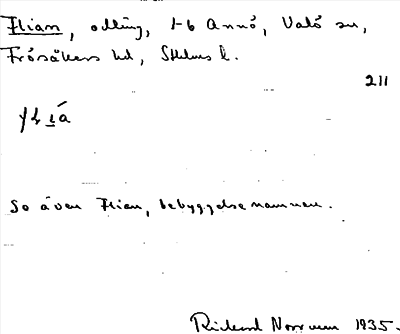 Flian, odling, 1-6 Annö, Valö sn,
Frösåkers hd, Sthlms l.
211
So även Flian, bebyggelsenamnen.
Rickard Norrman 1935.